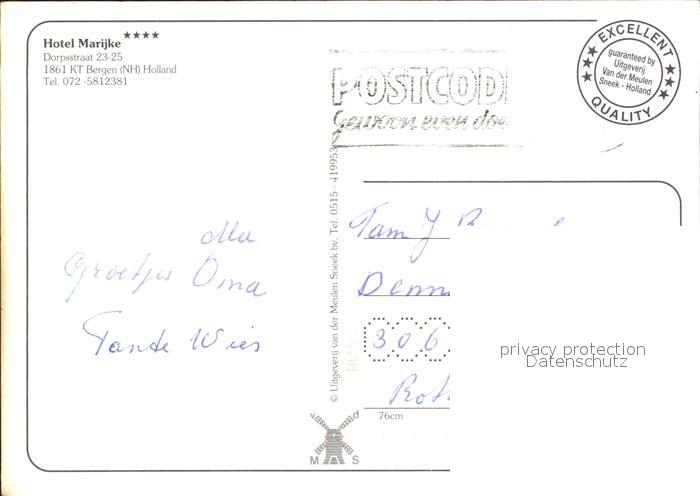 Hotel Marijke ****
Dorpsstraat 23-25
1861 KT Bergen (NH) Holland
Tel. 072-5812381
POSTCOD
Gewoon even doe
EXCELLENT
guaranteed by
Uitgeverij
Van der Meulen
Sneek - Holland
QUALITY
Groetjes Oma
Tante Wies
© Uitgeverij van der Meulen Sneek bv, Tel. 0515 - 419953
Fam
Denn
306
Rot
76cm
v d
M S
privacy protection
Datenschutz